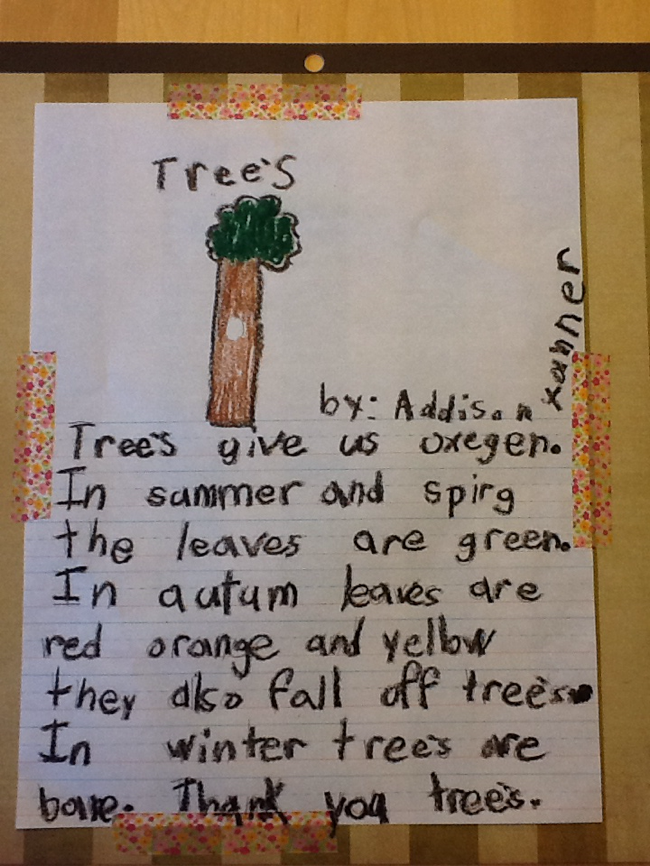 Tree's
by: Addison xanner
Tree's give us oxegen.
In summer and spirg
the leaves are green.
In autum leaves are
red orange and yellow
they also fall off tree's.
In winter tree's are
bare. Thank you tree's.